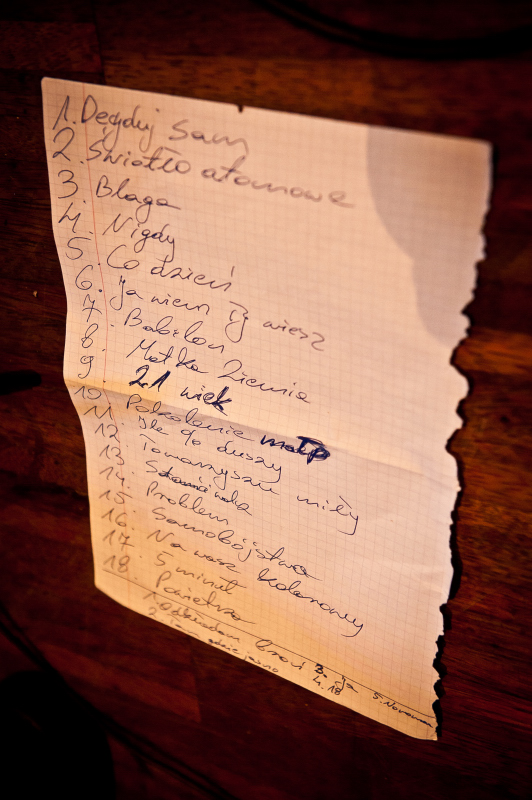 1. Decyduj sam
2. Światło atomowe
3. Blaga
4. Nigdy
5. Co dzień
6. Ja wiem Ty wiesz
7. Babilon
8. Matka Ziemia
9. 21 wiek
10. Pokolenie małp
11. Ile do duszy
12. Towarzyszu miły
13.
14. Problem
15. Samobójstwo
16. Na wasz kolorowy
17. 5 minut
18. Powietrza
1. broń 3. ja 5. Noworoman
2. Tam gdzie jasno 4. 18